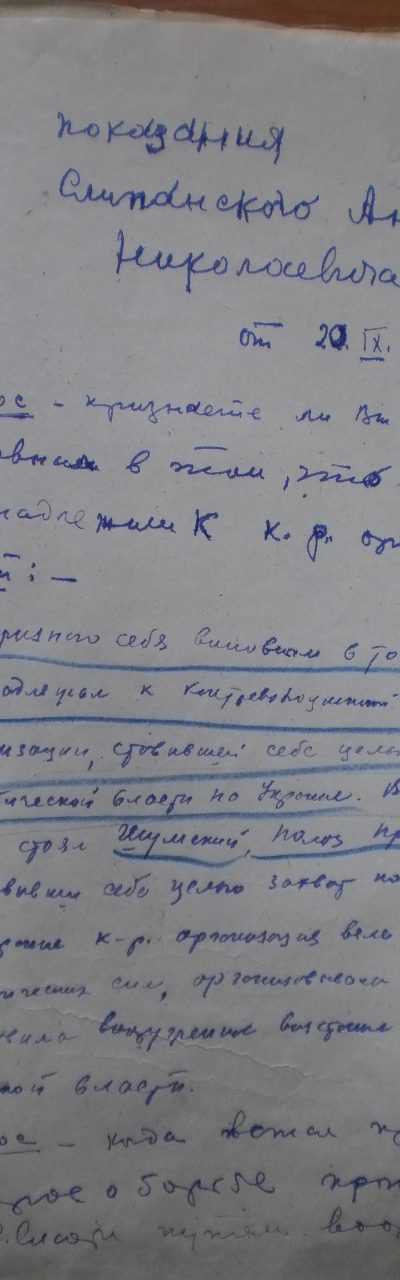 показания
Слипанского Ан
Николаевича
от 20. IX.
ос - признаете ли Вы
овным в том, что
надлежали к к. р. орг
т: —
ризнаю себя виновным в то
адлежал к контрреволюционной
изации, ставившей себе целью
тической власти на Украине. В
стоял Шумский, Полоз пр
вивши себе целью захват по
к-р. организация вела
ических сил, организовывала
овила вооружение восстание
кой власти.
ос - когда встал
рос о борьбе прот
С. Власти путем воо